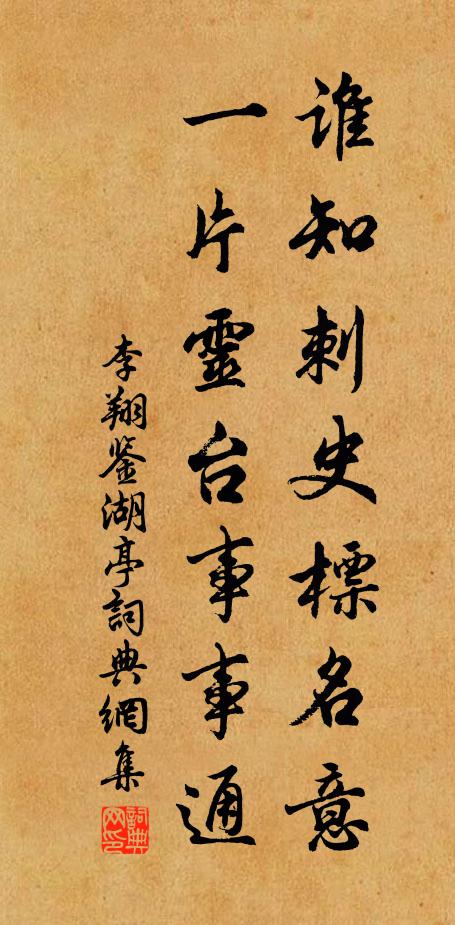 誰知刺史標名意
一片靈台事事通
李翔鉴湖亭詞典網集
詞典网印